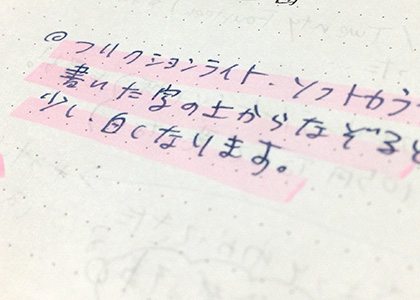 ◎フリクションライト・ソフトカラ
書いた字の上からなぞると
少し、白くなります。